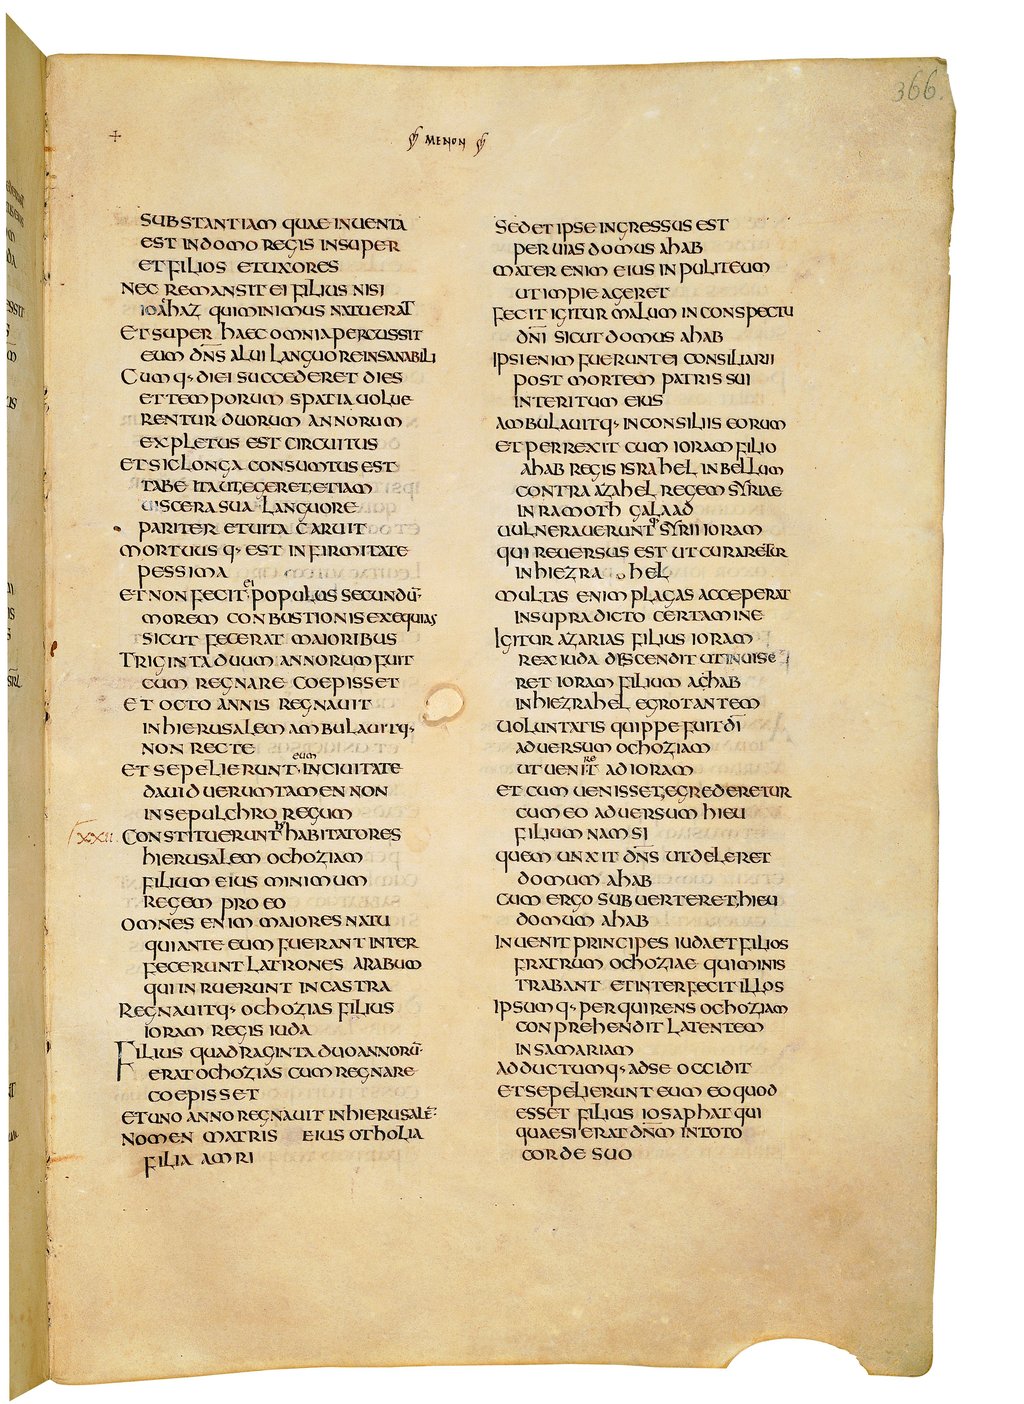 366.
+
MENON
SUBSTANTIAM QUAE INUENTA
EST IN DOMO REGIS INSUPER
ET FILIOS ET UXORES
NEC REMANSIT EI FILIUS NISI
IOAHAZ QUI MINIMUS NATU ERAT
ET SUPER HAEC OMNIA PERCUSSIT
EUM DN̄S ALUI LANGUORE INSANABILI
CUMQ· DIEI SUCCEDERET DIES
ET TEMPORUM SPATIA UOLUE
RENTUR DUORUM ANNORUM
EXPLETUS EST CIRCUITUS
ET SIC LONGA CONSUMTUS EST
TABE ITA UT EGERERET ETIAM
UISCERA SUA LANGUORE
PARITER ET UITA CARUIT
MORTUUSQ· EST INFIRMITATE
PESSIMA
ET NON FECIT EI POPULUS SECUNDŪ
MOREM CONBUSTIONIS EXEQUIAS
SICUT FECERAT MAIORIBUS
TRIGINTA DUUM ANNORUM FUIT
CUM REGNARE COEPISSET
ET OCTO ANNIS REGNAUIT
IN HIERUSALEM AMBULAUITQ·
NON RECTE
ET SEPELIERUNT EUM IN CIUITATE
DAUID UERUMTAMEN NON
IN SEPULCHRO REGUM
XXII. CONSTITUERUNT HABITATORES
HIERUSALEM OCHOZIAM
FILIUM EIUS MINIMUM
REGEM PRO EO
OMNES ENIM MAIORES NATU
QUI ANTE EUM FUERANT INTER
FECERUNT LATRONES ARABUM
QUI INRUERUNT IN CASTRA
REGNAUITQ· OCHOZIAS FILIUS
IORAM REGIS IUDA
FILIUS QUADRAGINTA DUO ANNORŪ
ERAT OCHOZIAS CUM REGNARE
COEPISSET
ET UNO ANNO REGNAUIT IN HIERUSALĒ
NOMEN MATRIS EIUS OTHOLIA
FILIA AMRI
SED ET IPSE INGRESSUS EST
PER UIAS DOMUS AHAB
MATER ENIM EIUS INPULIT EUM
UT IMPIE AGERET
FECIT IGITUR MALUM IN CONSPECTU
DN̄I SICUT DOMUS AHAB
IPSI ENIM FUERUNT EI CONSILIARII
POST MORTEM PATRIS SUI
INTERITUM EIUS
AMBULAUITQ· IN CONSILIIS EORUM
ET PERREXIT CUM IORAM FILIO
AHAB REGIS ISRAHEL IN BELLUM
CONTRA AZAHEL REGEM SYRIAE
IN RAMOTH GALAAD
UULNERAUERUNTQ· SYRII IORAM
QUI REUERSUS EST UT CURARETUR
IN HIEZRAHEL
MULTAS ENIM PLAGAS ACCEPERAT
IN SUPRADICTO CERTAMINE
IGITUR AZARIAS FILIUS IORAM
REX IUDA DISCENDIT UT INUISE
RET IORAM FILIUM ACHAB
IN HIEZRAHEL EGROTANTEM
UOLUNTATIS QUIPPE FUIT DĪ
ADUERSUM OCHOZIAM
UT UENIRET AD IORAM
ET CUM UENISSET EGREDERETUR
CUM EO ADUERSUM HIEU
FILIUM NAMSI
QUEM UNXIT DN̄S UT DELERET
DOMUM AHAB
CUM ERGO SUBUERTERET HIEU
DOMUM AHAB
INUENIT PRINCIPES IUDA ET FILIOS
FRATRUM OCHOZIAE QUI MINIS
TRABANT ET INTERFECIT ILLOS
IPSUMQ· PERQUIRENS OCHOZIAM
CONPREHENDIT LATENTEM
IN SAMARIAM
ADDUCTUMQ· AD SE OCCIDIT
ET SEPELIERUNT EUM EO QUOD
ESSET FILIUS IOSAPHAT QUI
QUAESIERAT DN̄M IN TOTO
CORDE SUO